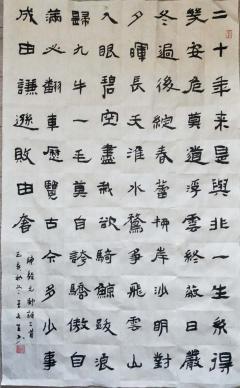 二十年来是與非一生系得
幾安危莫道浮雲終蔽日嚴
冬過後綻春蕾柳岸沙明對
夕暉長天淮水鶩争飛雲山
入眼碧空盡我欲騎鯨跋浪
歸九牛一毛莫自誇驕傲自
滿必翻車歷覽古今多少事
成由謙遜敗由奢
元帥詩三首
己亥秋